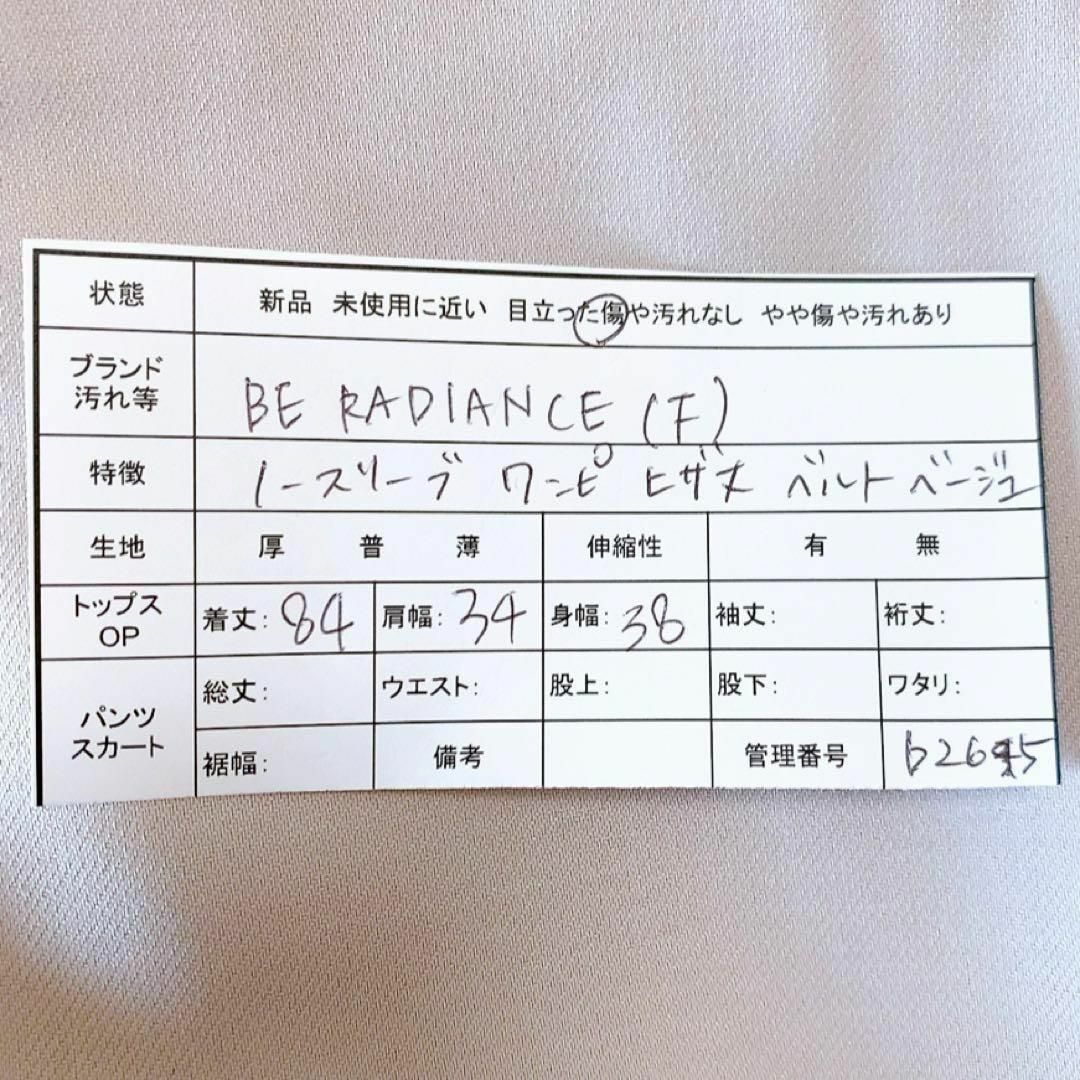 状態 新品 未使用に近い 目立った傷や汚れなし やや傷や汚れあり
ブランド
汚れ等 BE RADIANCE (F)
特徴 ノースリーブ ワンピ ヒザ丈 ベルト ベージュ
生地 厚 普 薄 伸縮性 有 無
トップス
OP 着丈: 84 肩幅: 34 身幅: 38 袖丈: 裄丈:
パンツ
スカート 総丈: ウエスト: 股上: 股下: ワタリ:
裾幅: 備考 管理番号